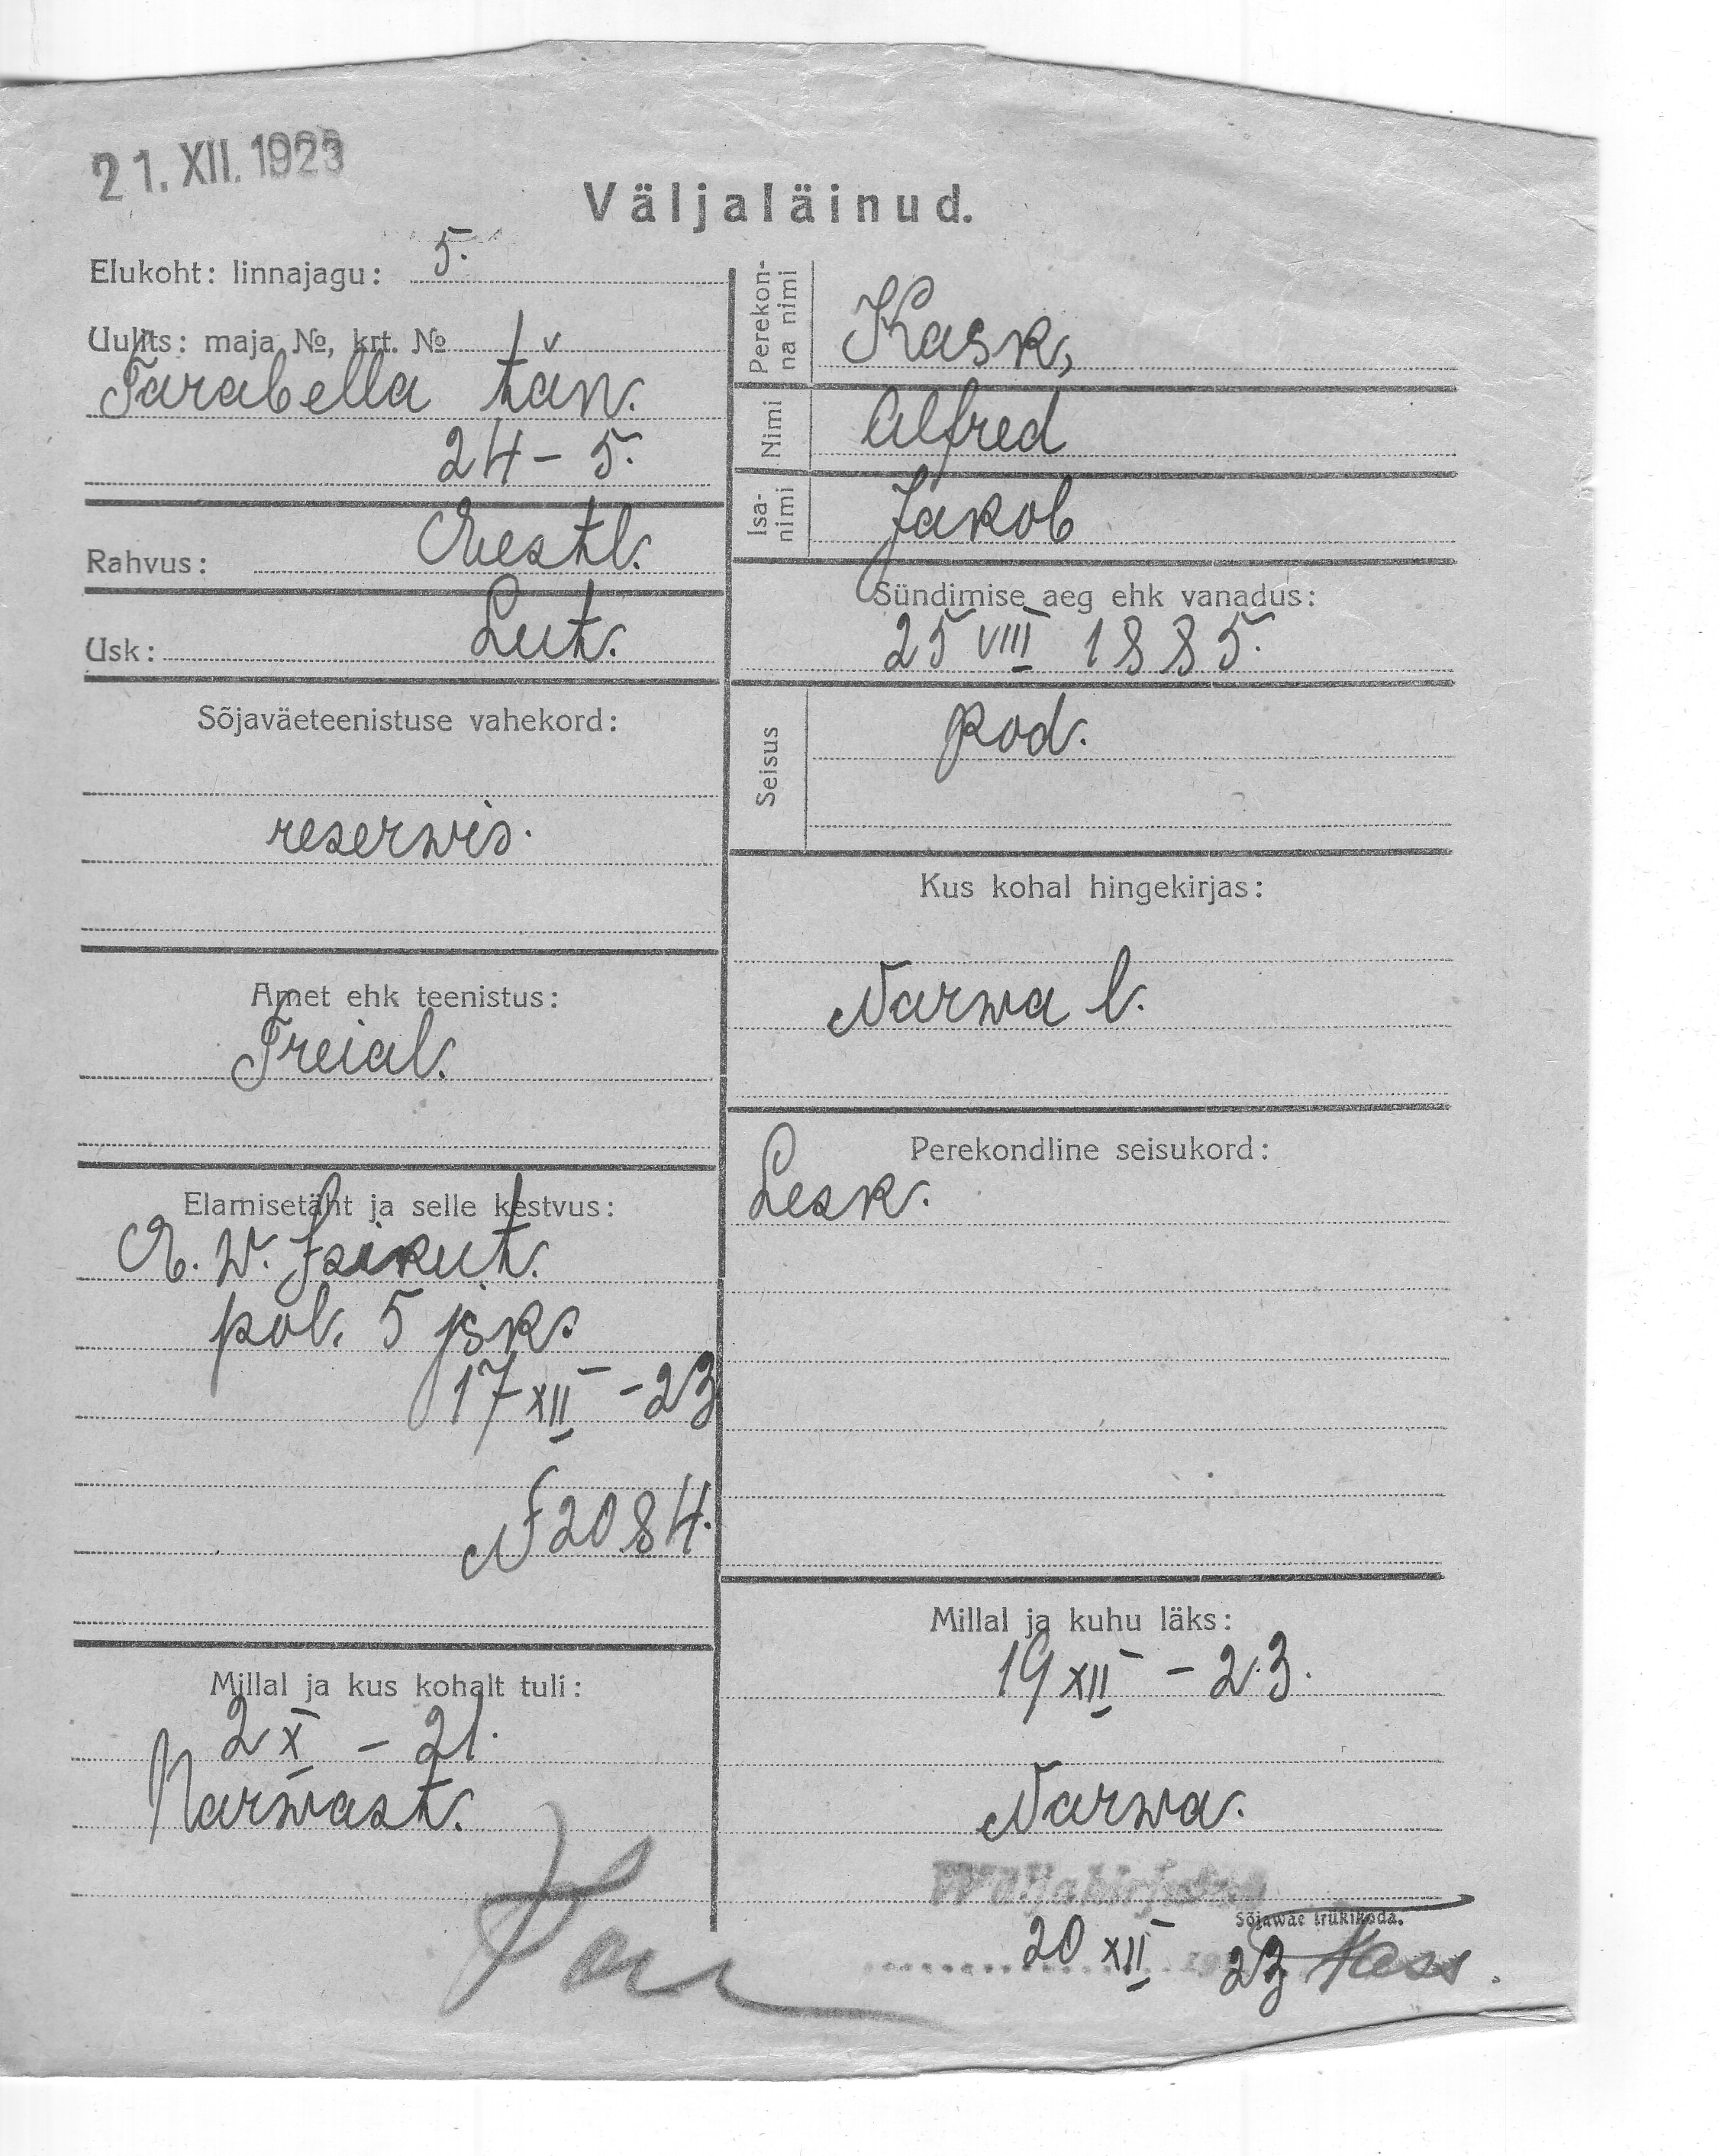 21. XII. 1923
Väljaläinud.
Elukoht: linnajagu: 5.
Uulits: maja №, krt. №
Tarabella tän.
24 – 5.
Rahvus: Eestl.
Usk: Lut.
Sõjaväeteenistuse vahekord:
reserwis.
Amet ehk teenistus:
Treial.
Elamisetäht ja selle kestvus:
E. W. Isikut.
pol. 5 jsk.
17 XII – 23
N 2084.
Millal ja kus kohalt tuli:
2 X – 21.
Narwast.
Perekonna nimi
Kask,
Nimi
Alfred
Isanimi
Jakob
Sündimise aeg ehk vanadus:
25 VIII 1885.
Seisus
kod.
Kus kohal hingekirjas:
Narwa l.
Perekondline seisukord:
Lesk.
Millal ja kuhu läks:
19 XII – 23.
Narwa.
Wäljakirjutud
Sõjawäe trükikoda.
20 XII 23